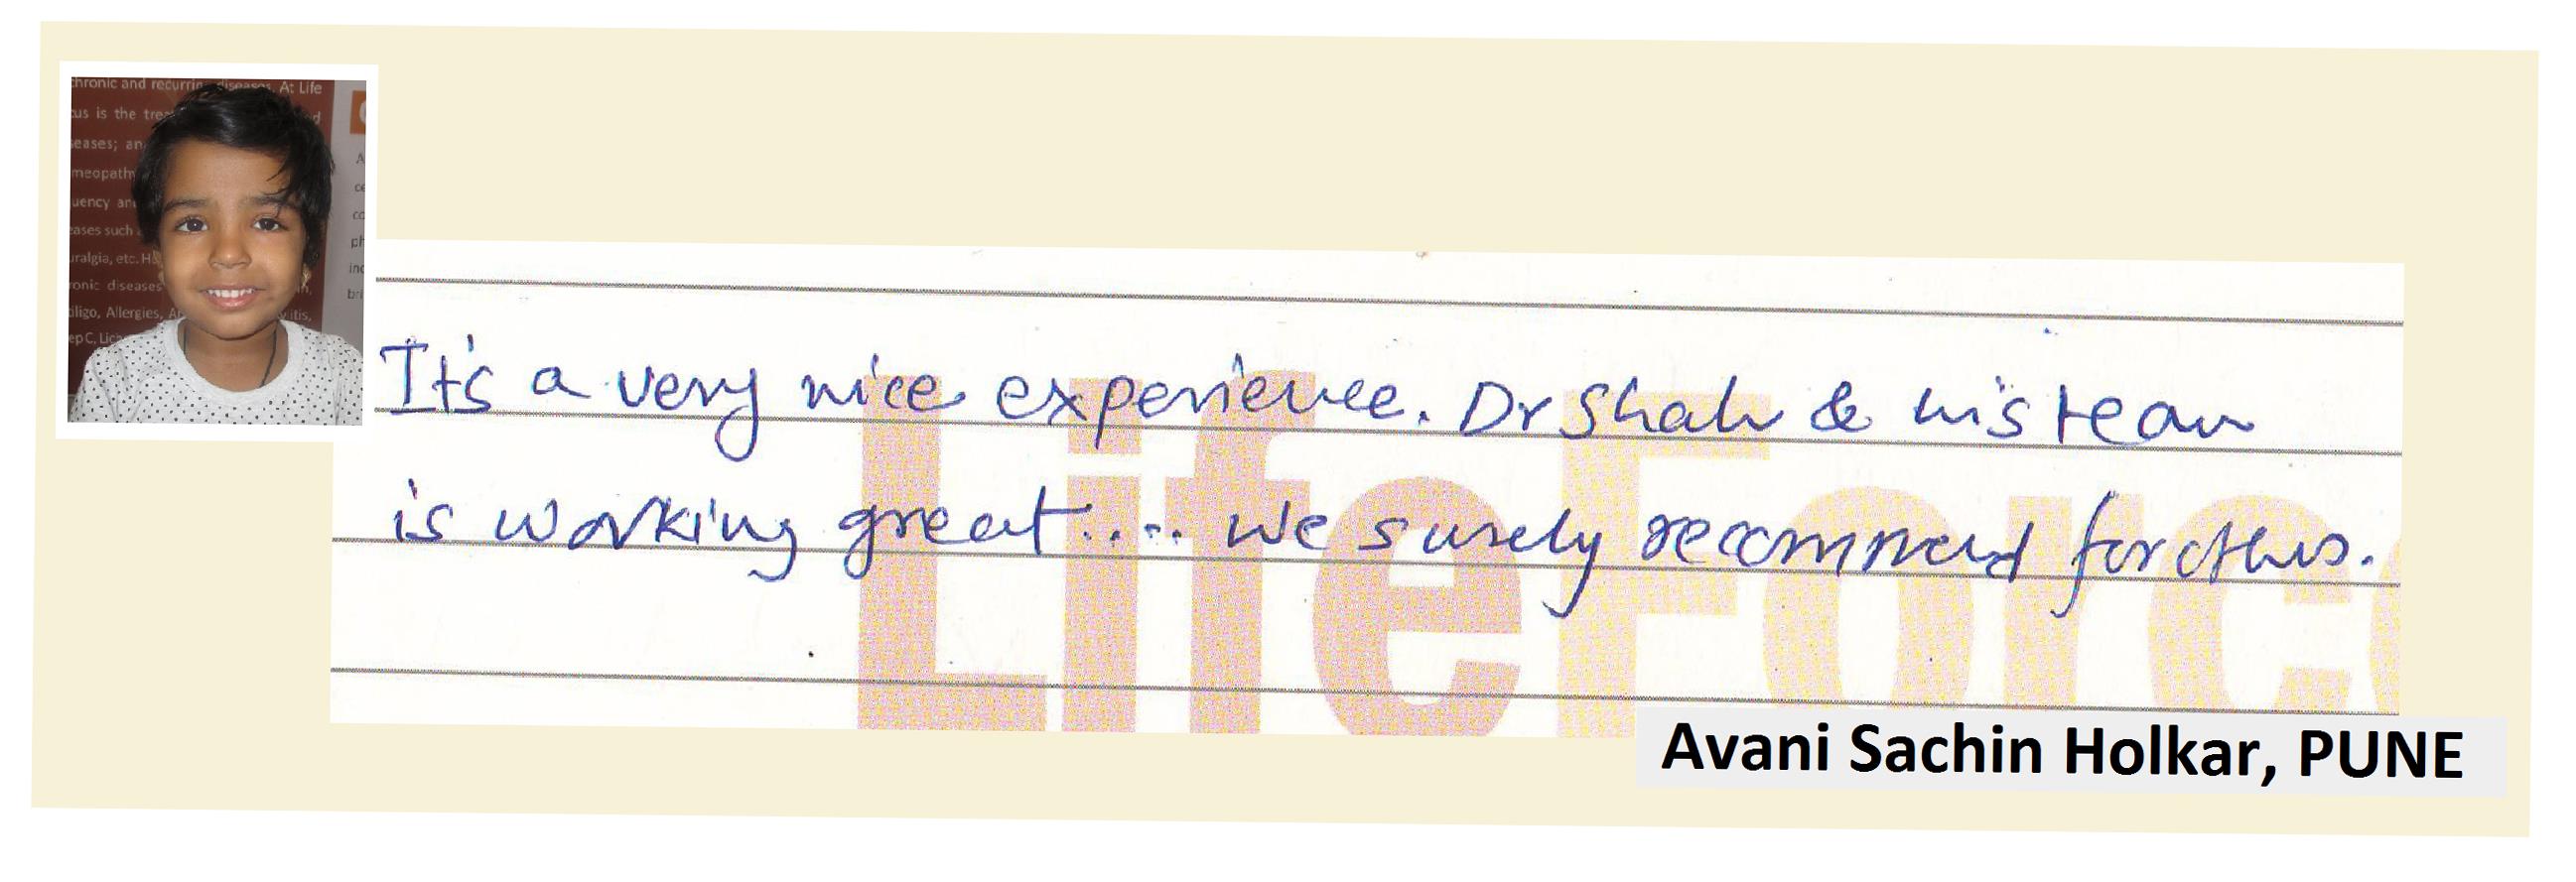 chronic and recurring diseases. At Life
us is the
eases; an
meopath
uency an
eases such
uralgia, etc.
ronic diseases
Allergies,
ep C,
It's a very nice experience. Dr Shah & his team
is working great..... we surely recommend for others.
LifeForce
Avani Sachin Holkar, PUNE